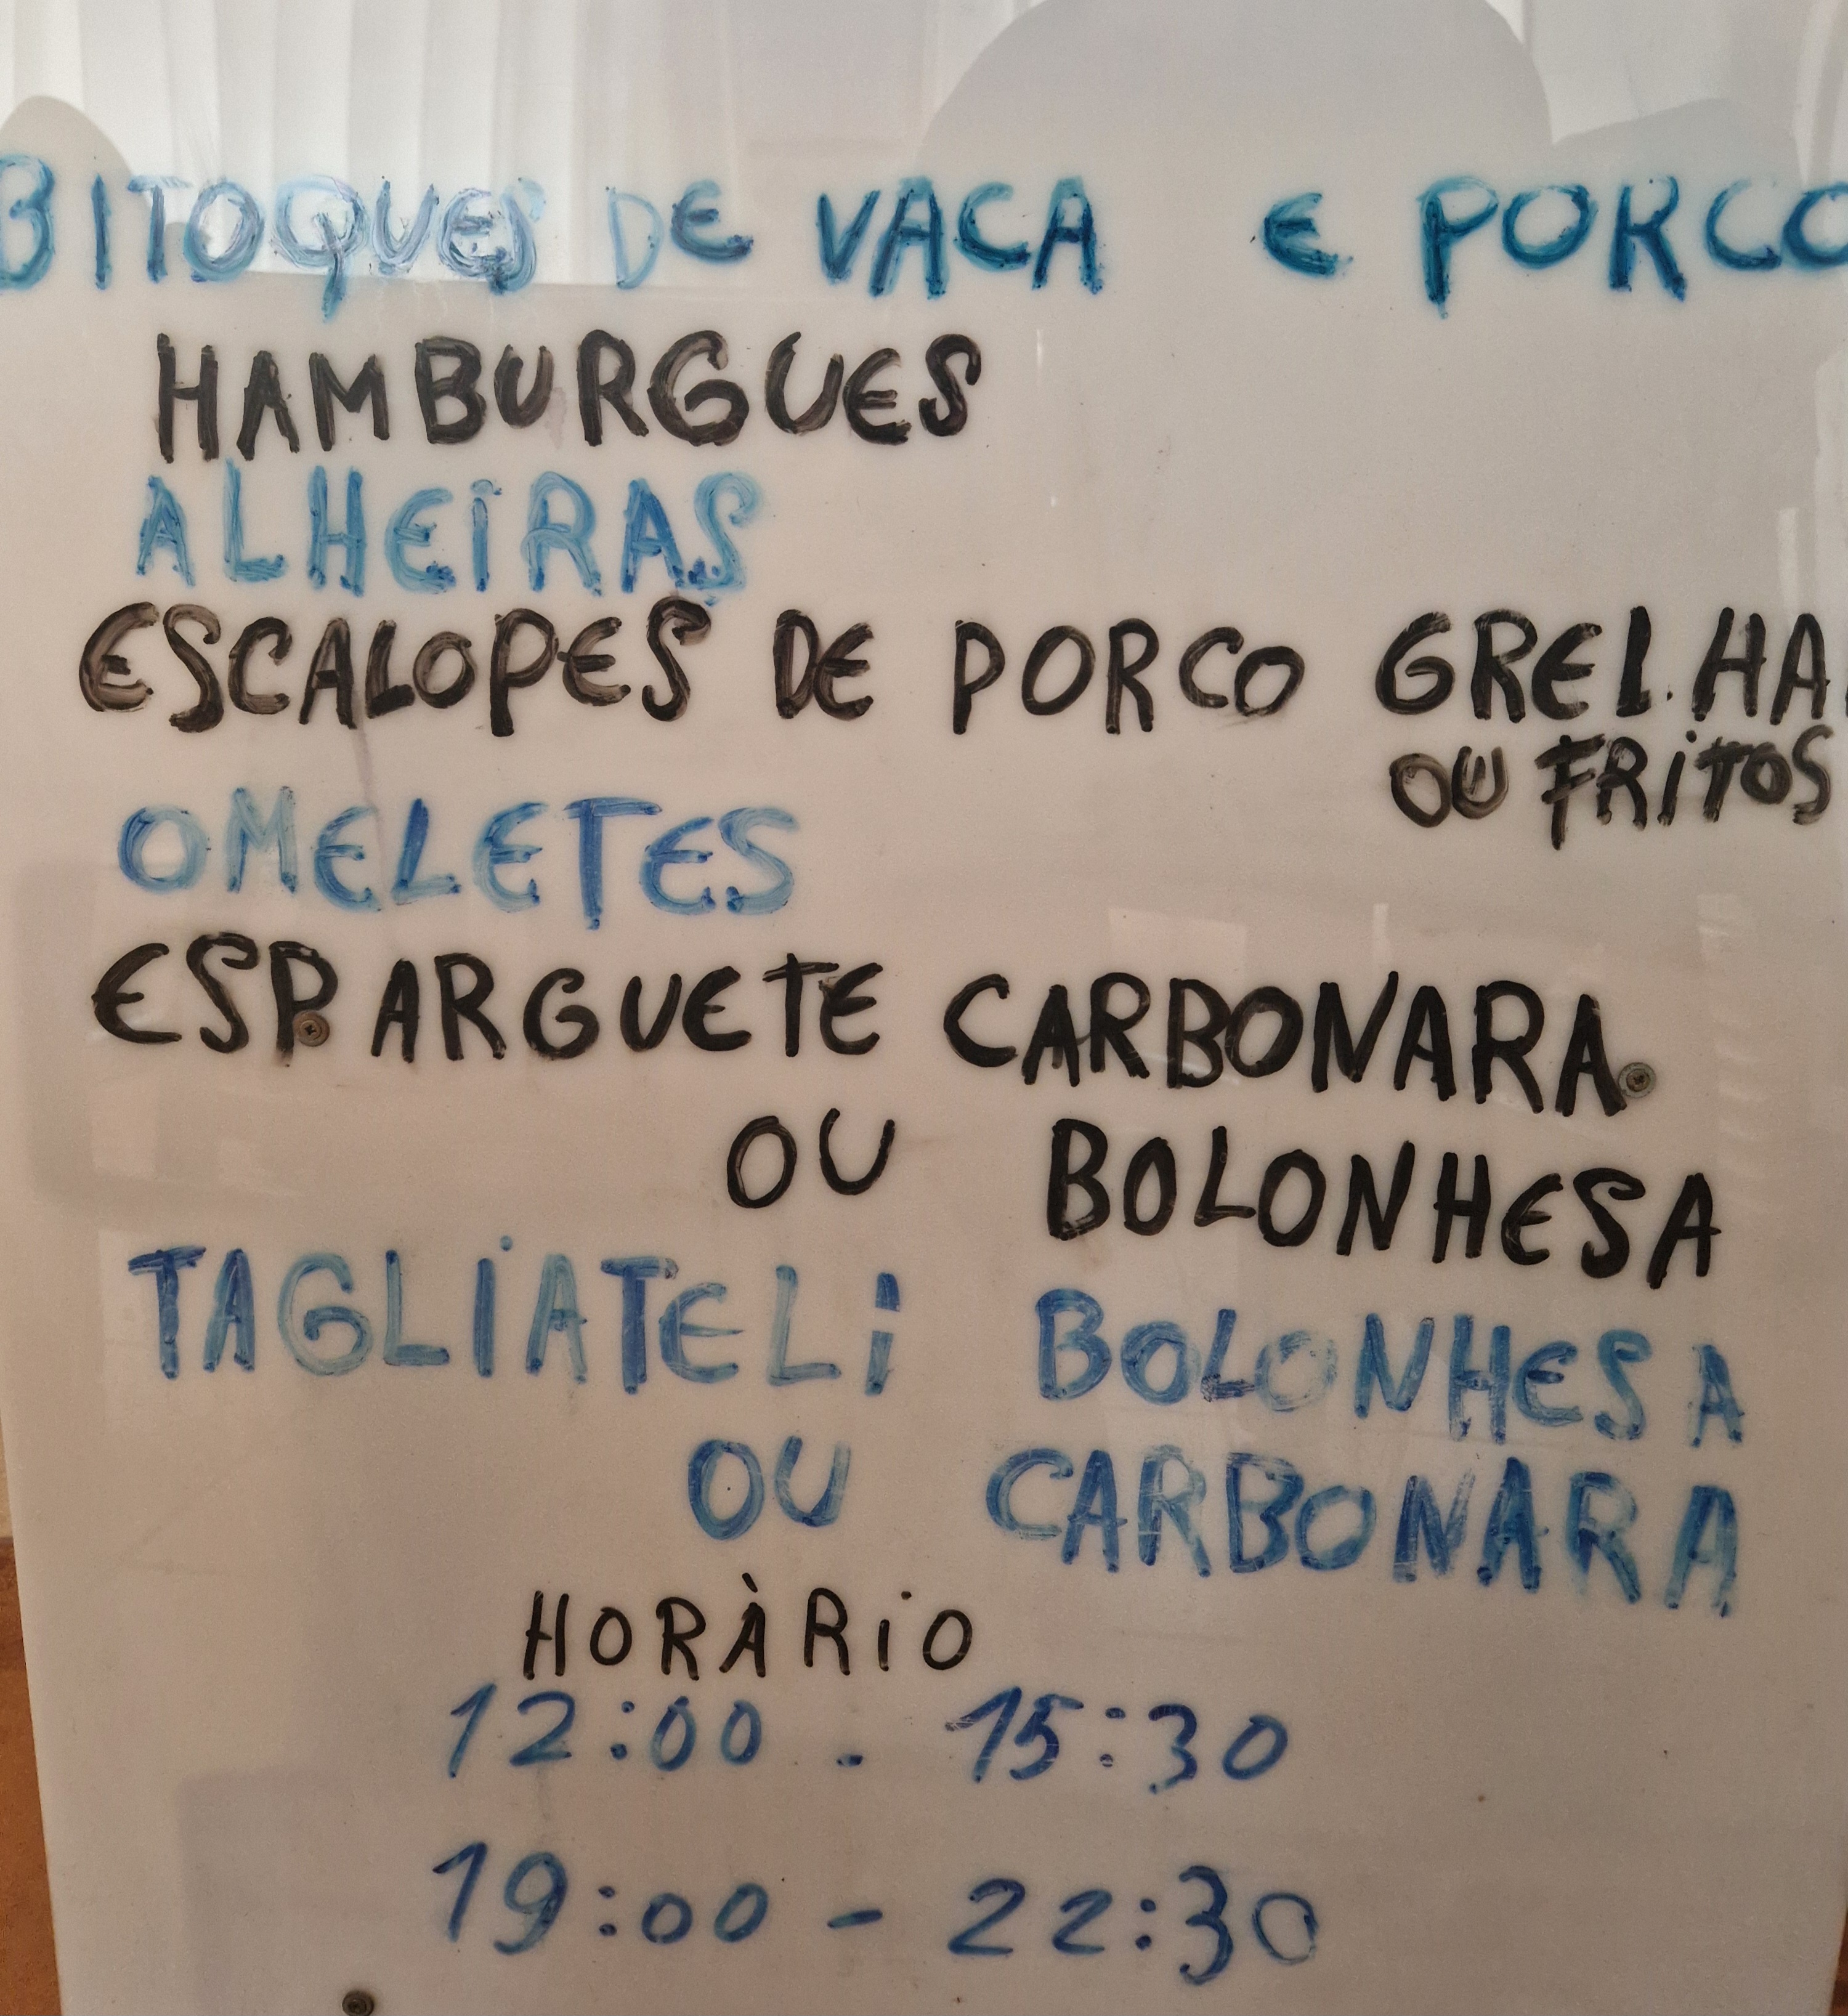 BITOQUES DE VACA E PORCO
HAMBURGUES
ALHEIRAS
ESCALOPES DE PORCO GRELHA
OU FRITOS
OMELETES
ESPARGUETE CARBONARA
OU BOLONHESA
TAGLIATELI BOLONHESA
OU CARBONARA
HORÀRIO
12:00 - 15:30
19:00 - 22:30